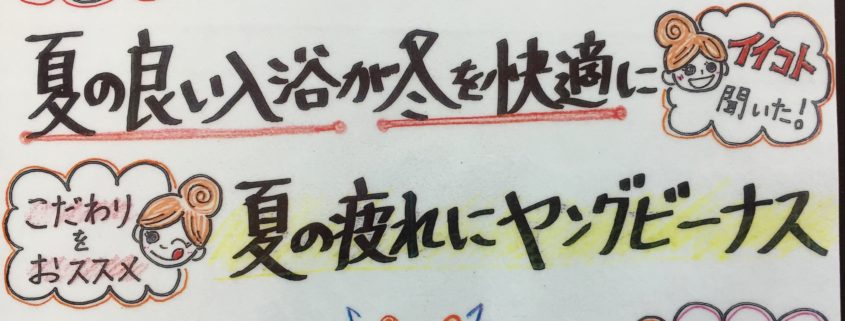 夏の良い入浴が冬を快適に
イイコト
聞いた!
こだわり
を
おススメ
夏の疲れにヤングビーナス